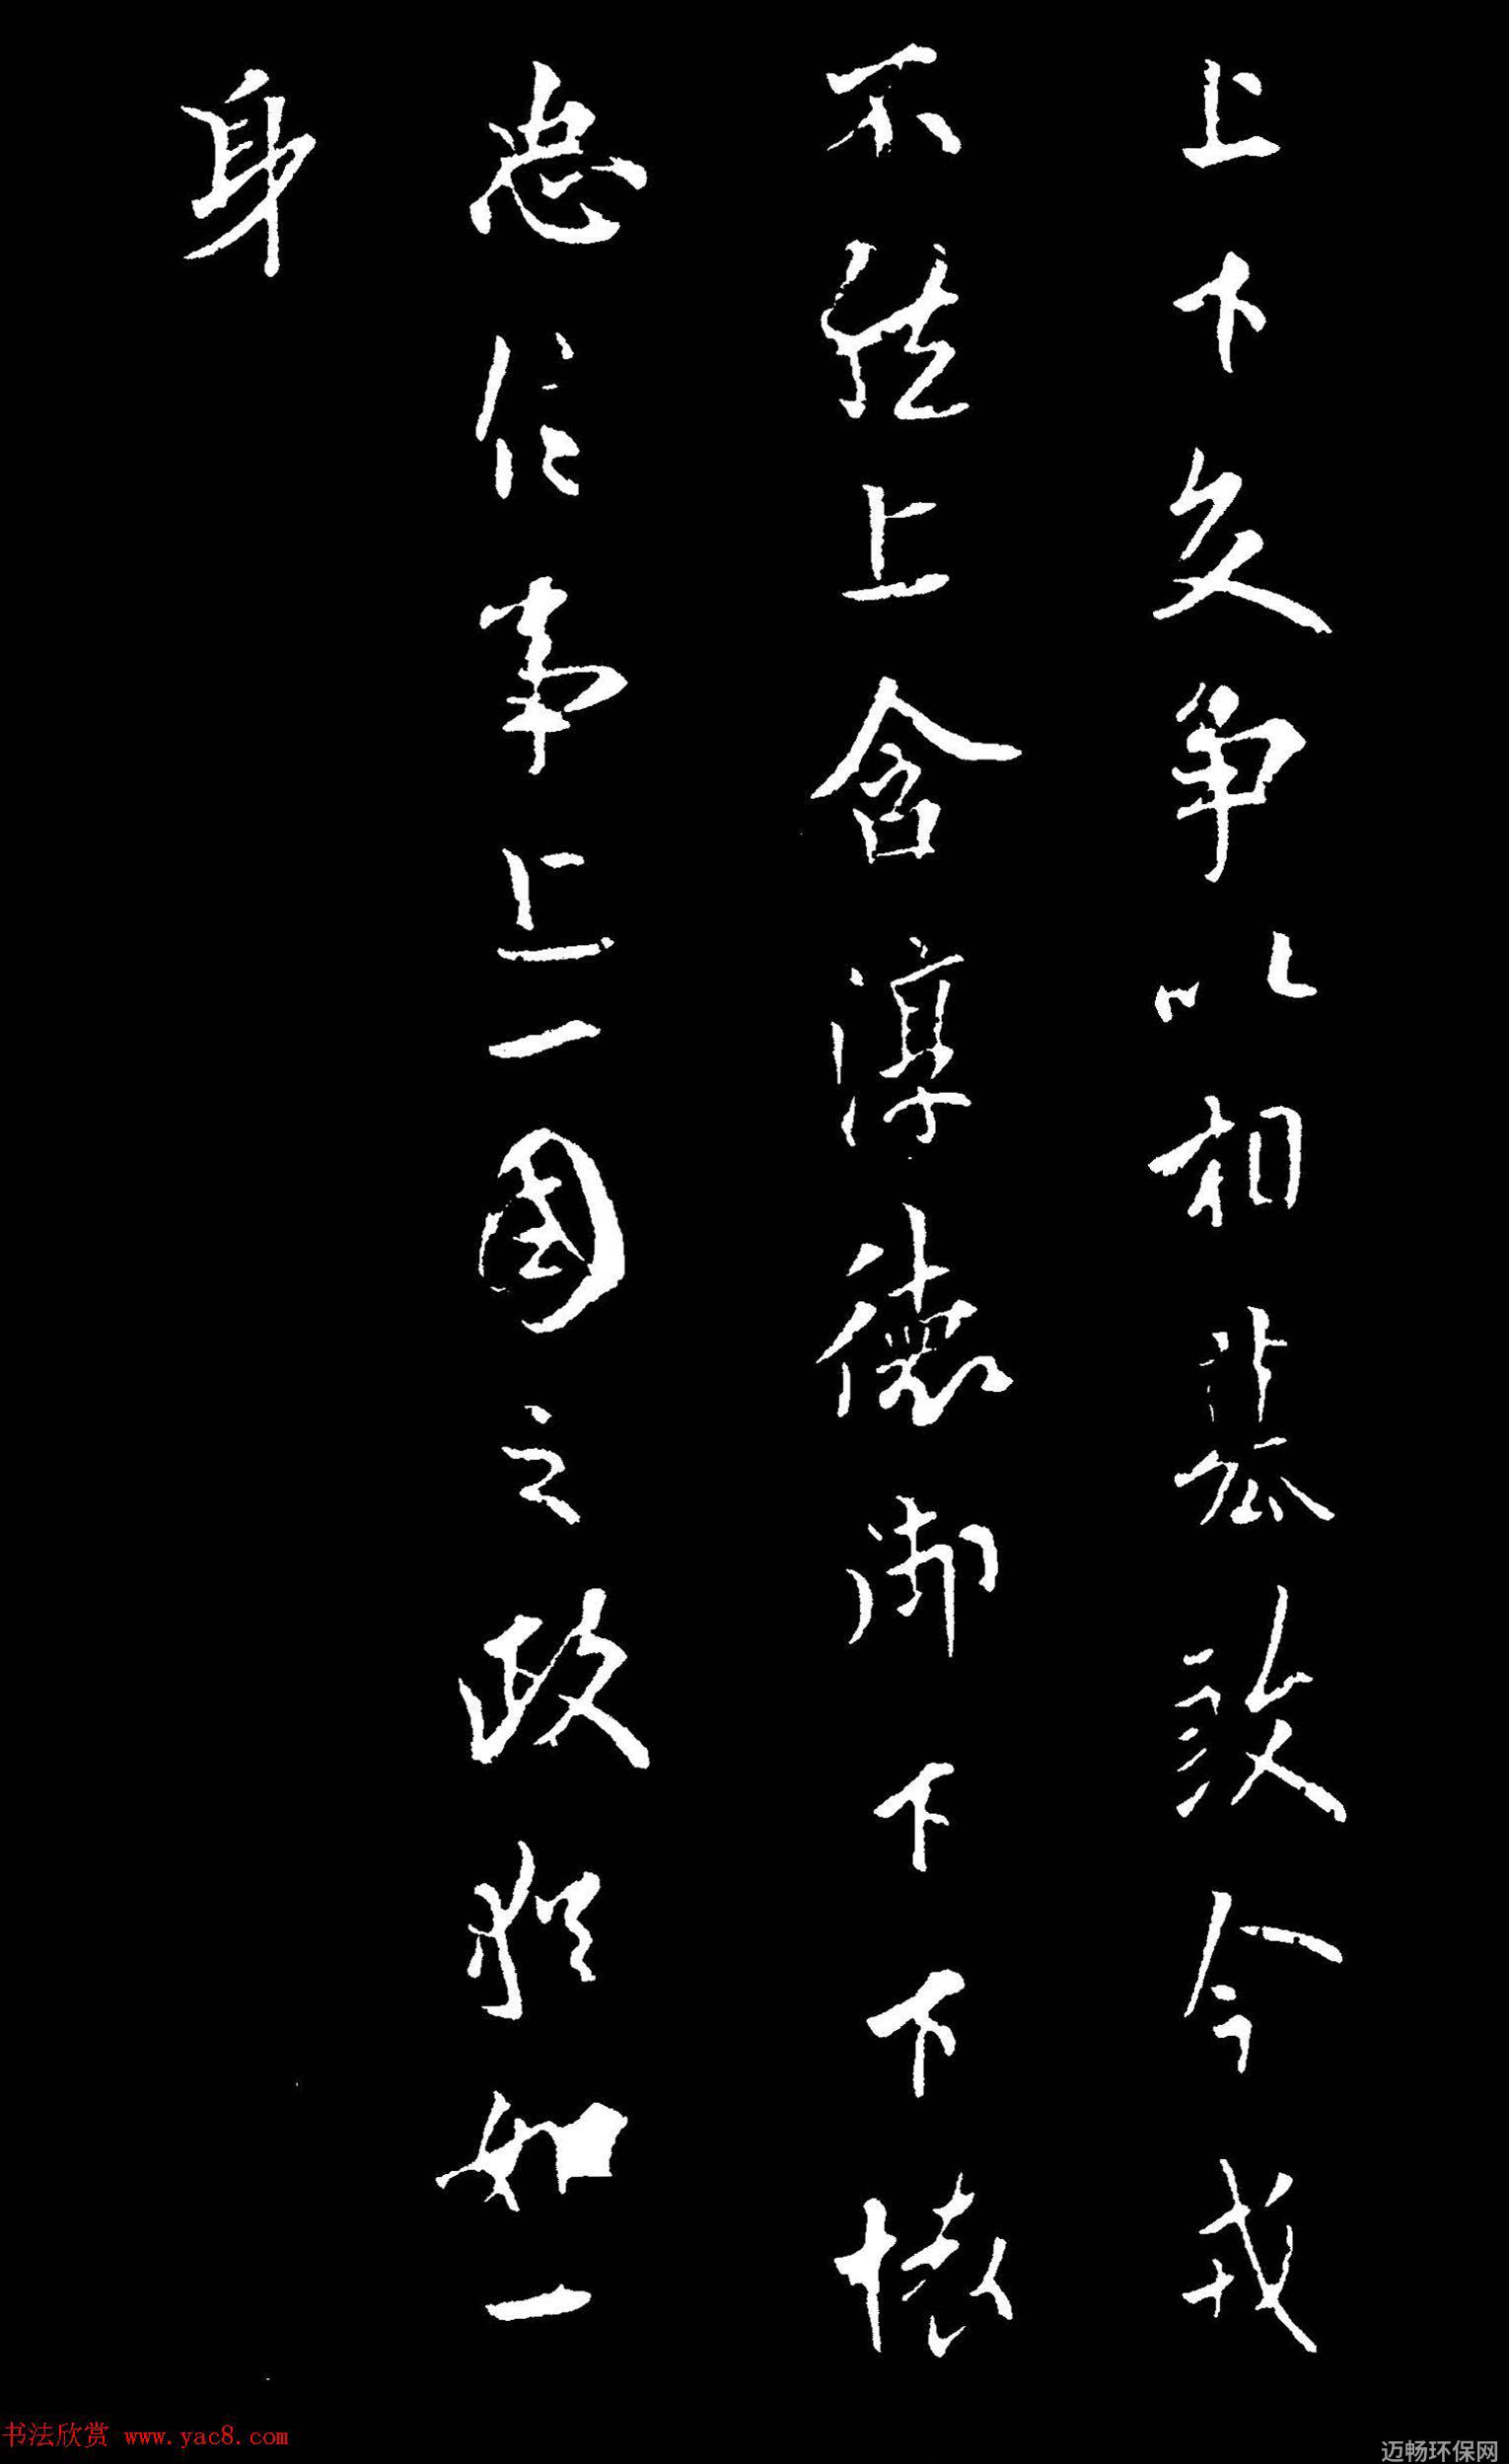 上下交争以相篡弑今戎
不然上含淳德御下下懷
忠信事上一國之政猶如一
身
书法欣赏 www.yac8.com
迈畅环保网